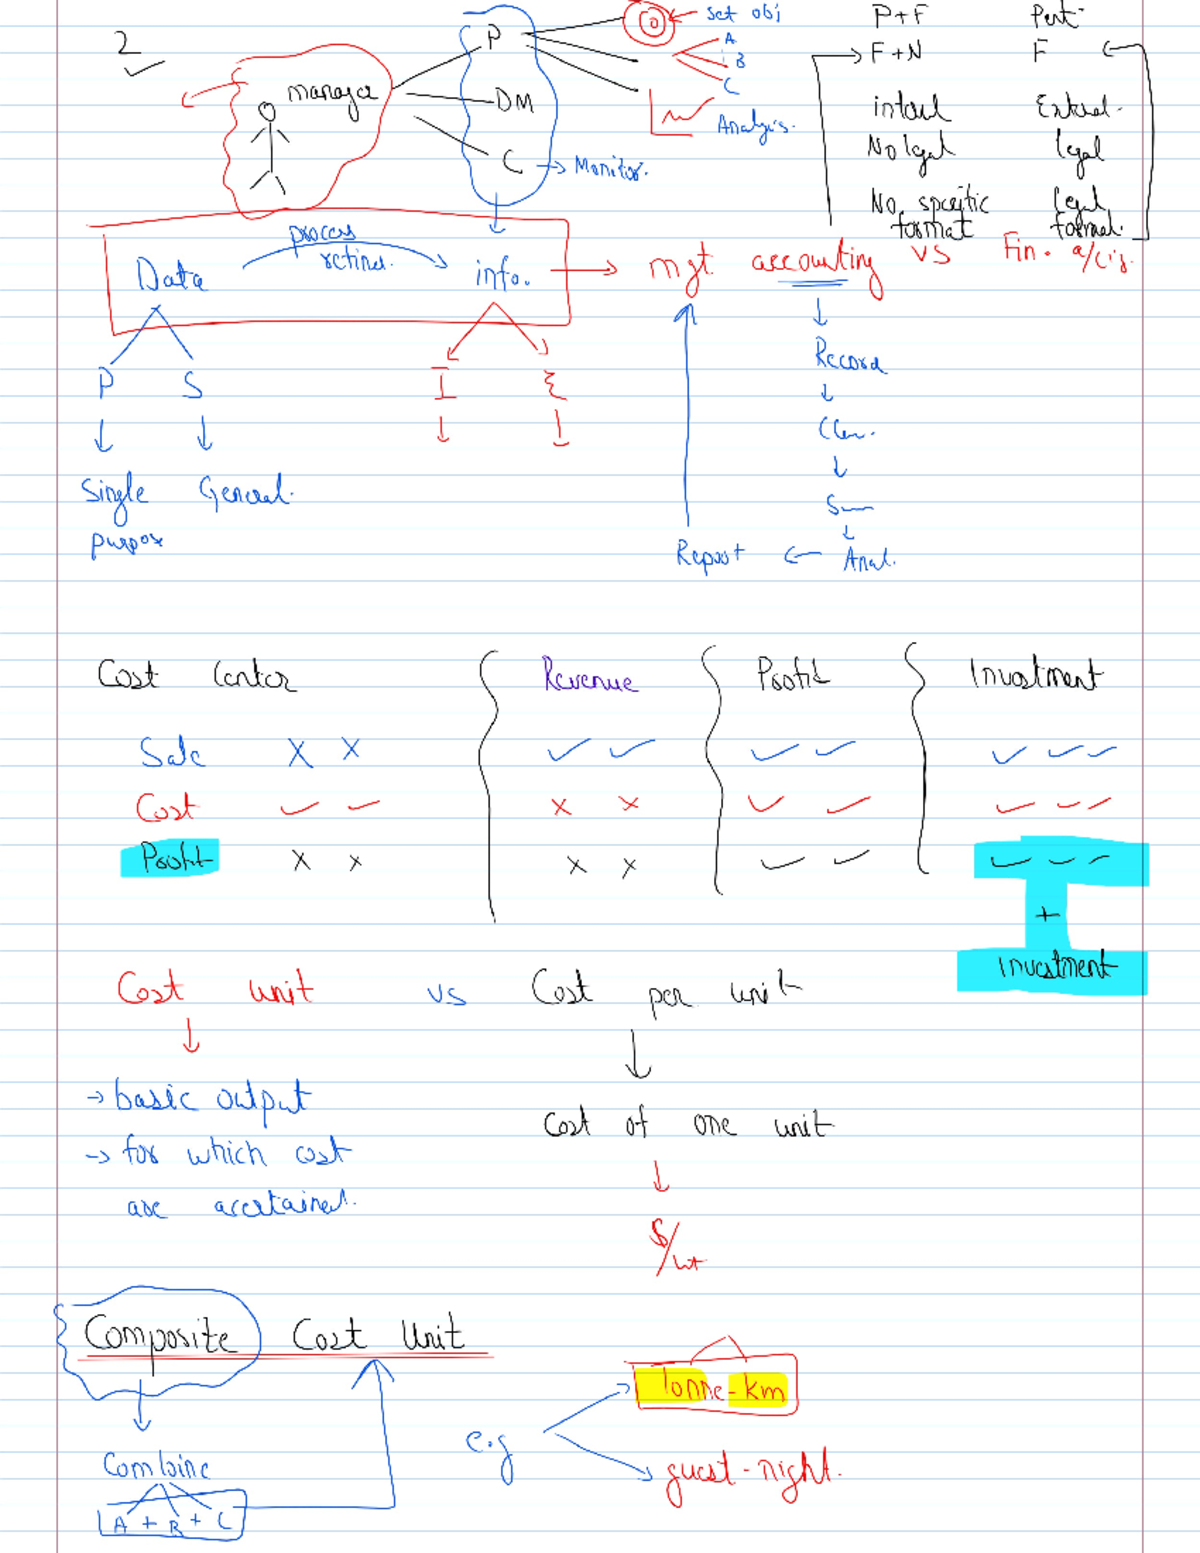 2
P
Set obj
A
B
C
Analysis.
P+F
Past
F+N
F
manager
DM
C
Monitor.
No legal
legal
No specific
format
legal
format.
process
Data
info.
mgt accounting vs Fin.
P
S
I
E
Record
Single
purpose
General.
Report
Anal.
Cost Center
Revenue
Profit
Investment
Sale X X
Cost
X X
Profit X X
X X
+
Investment
Cost unit vs Cost per unit
→ basic output
→ for which cost
are
Cost of one unit
$/
Composite Cost Unit
Tonne-km
e.g
guest-night.
Combine
A + B + C